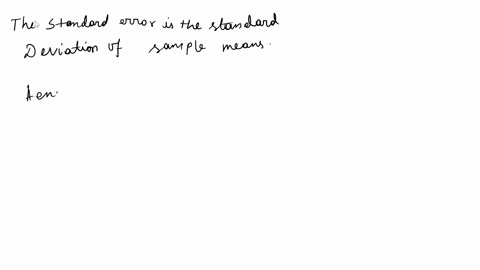 The standard error is the standard
Deviation of sample means.
Hen